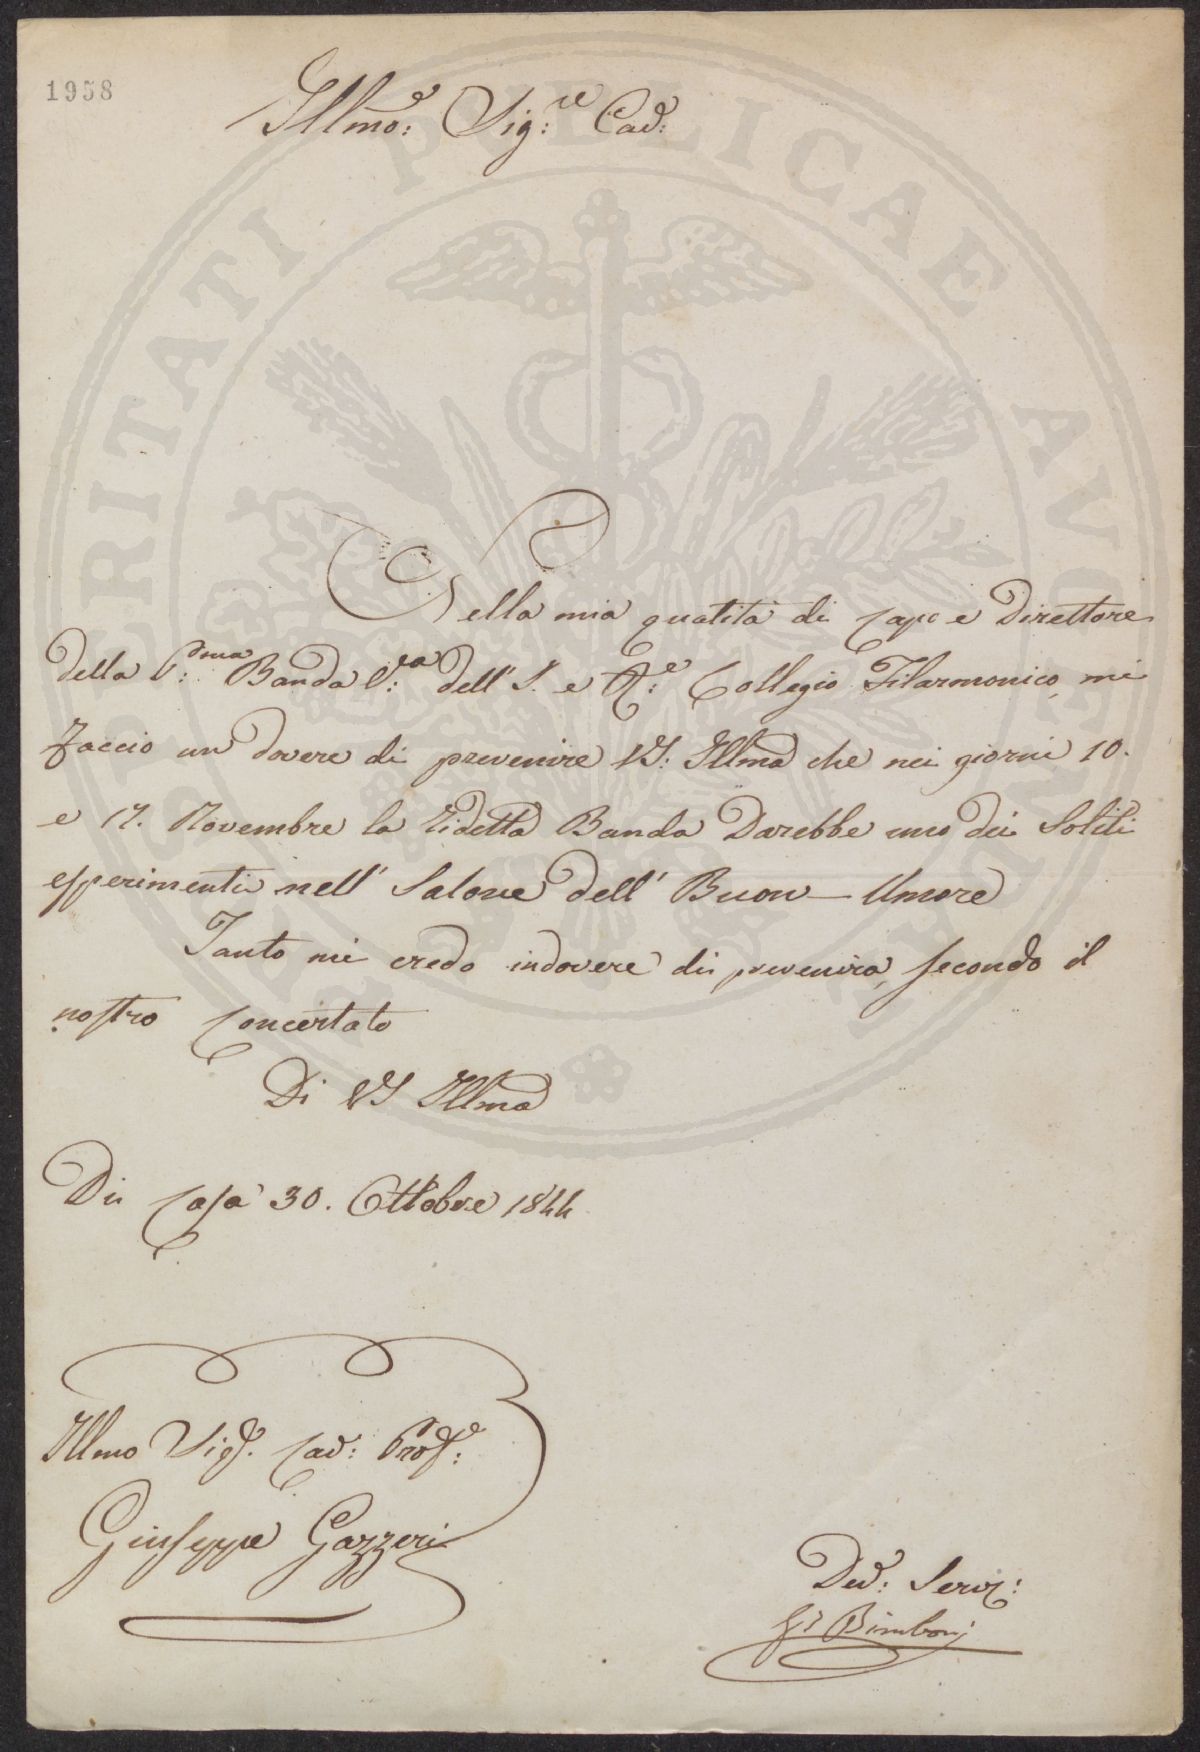 1958
Illmo: Sig:re Cav:
Nella mia qualità di Capo e Direttore
della P:ma Banda C:ca dell' I. e R:e Collegio Filarmonico, mi
faccio un dovere di prevenire VS: Illma che nei giorni 10.
e 17. Novembre la ridetta Banda Darebbe uno dei Soliti
esperimenti nell' Salone dell' Buon-Umore
Tanto mi credo indovere di prevenirla, secondo il
nostro Concertato
Di VS Illma
Di Casa 30. Ottobre 1844
Illmo Sigr. Cav: Profe:
Giuseppe Gazzeri
Dev: Serv:
Bimboni
PUBLICAE